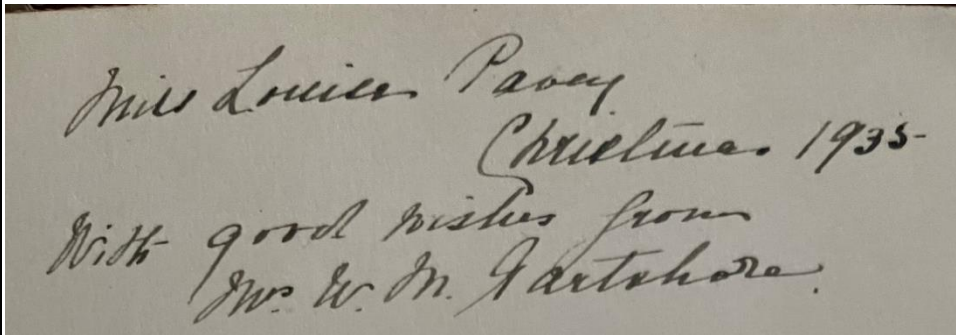 Miss Louisa Pavey
Christmas 1935
With good wishes from
Mrs W. M. Gartshore.